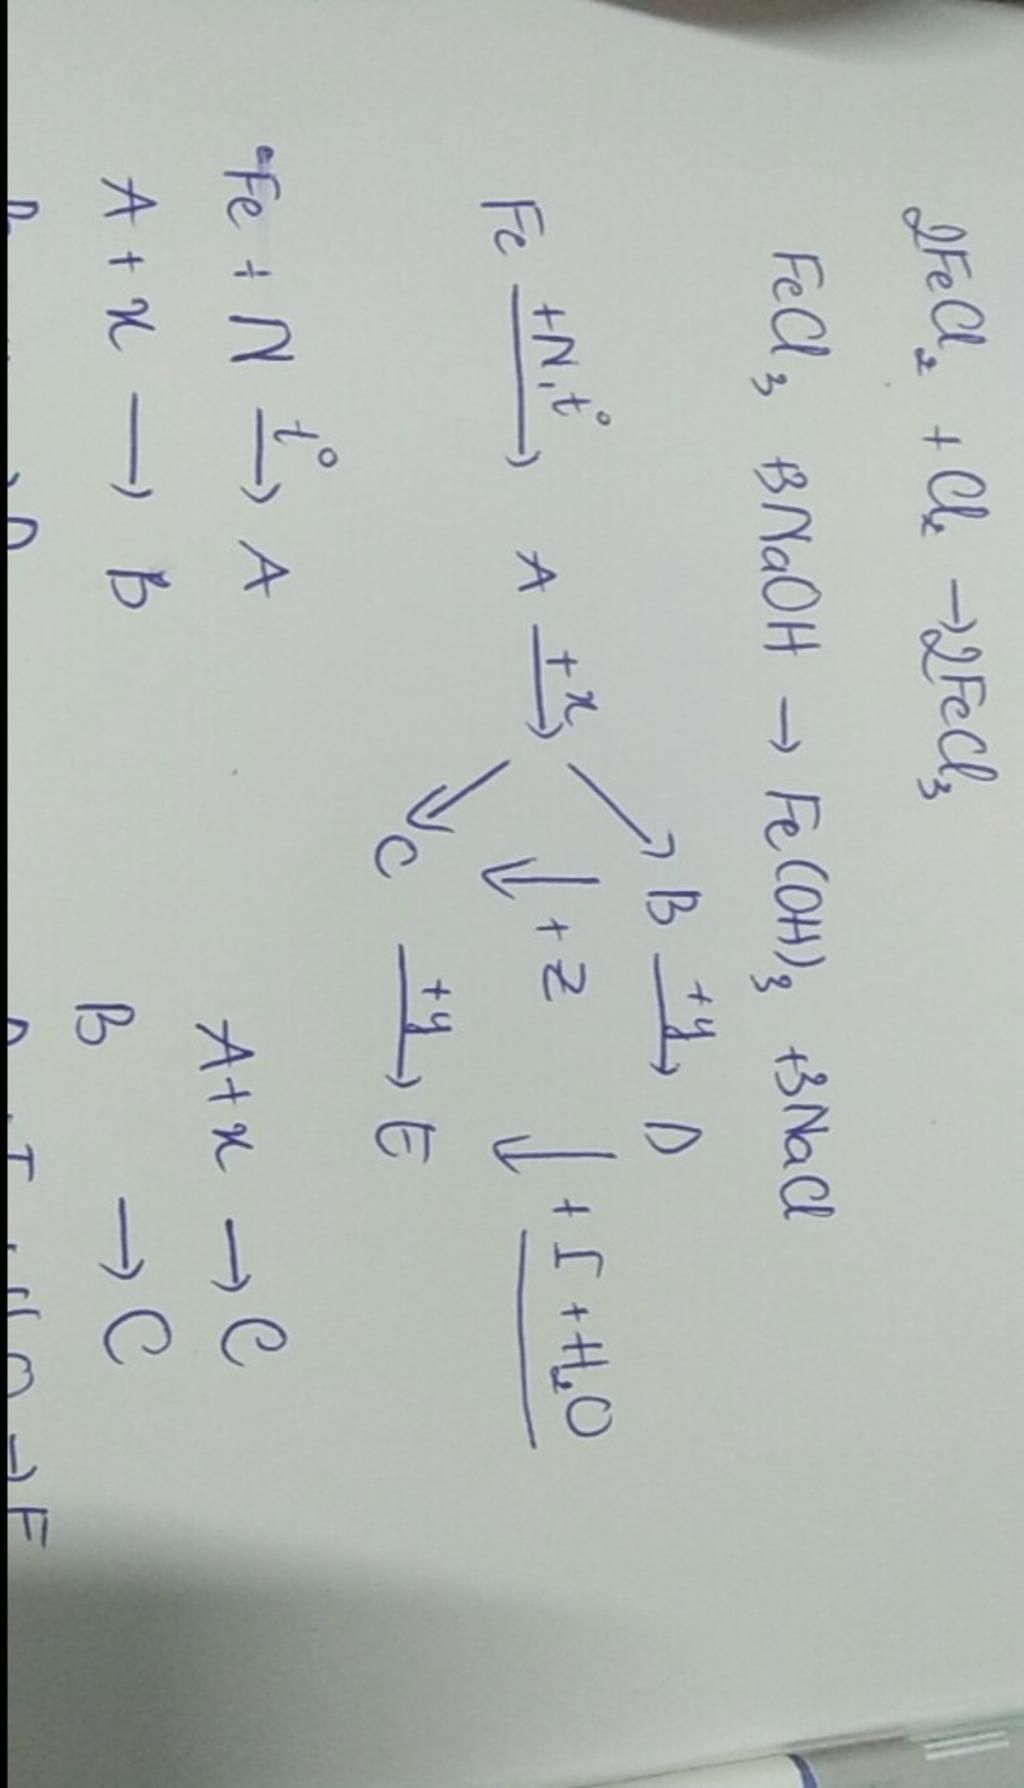 2FeCl₂ + Cl₂ → 2FeCl₃
FeCl₃ + 3NaOH → Fe(OH)₃ + 3NaCl
B +y → D
Fe +N, t° → A +x → ↓ +Z ↓ + I + H₂O
C +y → E
Fe + N t° → A A + x → C
A + x → B B → C